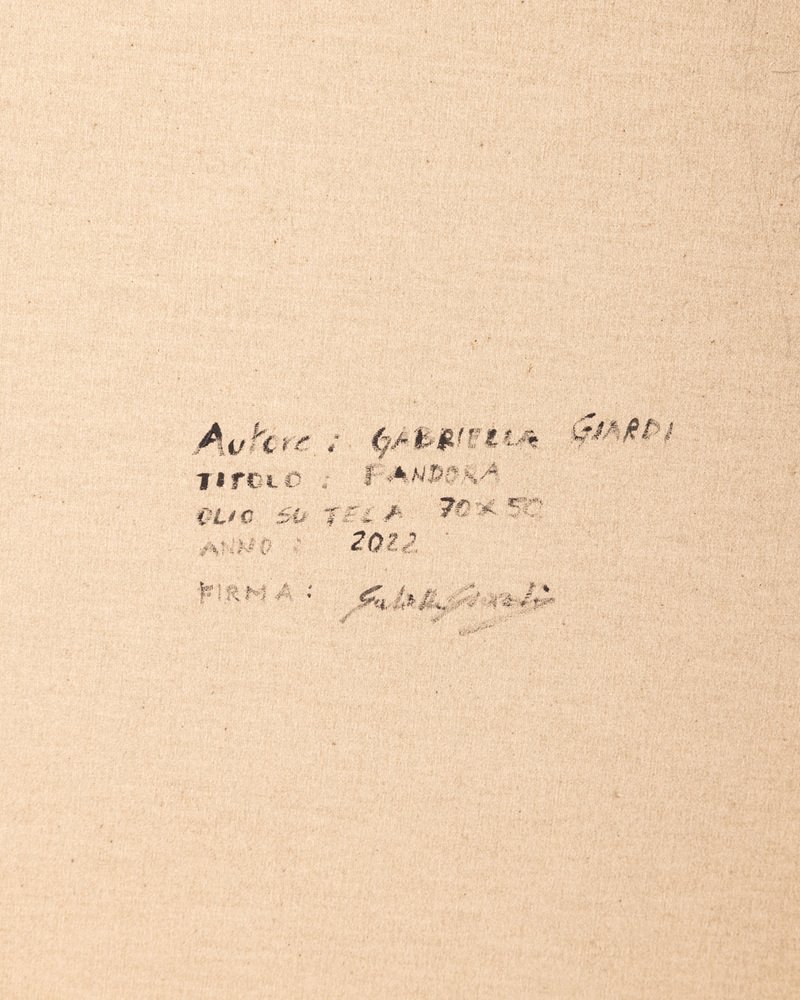 Autore : GABRIELLA GIARDI
TITOLO : PANDORA
OLIO SU TELA 70X50
ANNO : 2022
FIRMA : Gabriella Giardi